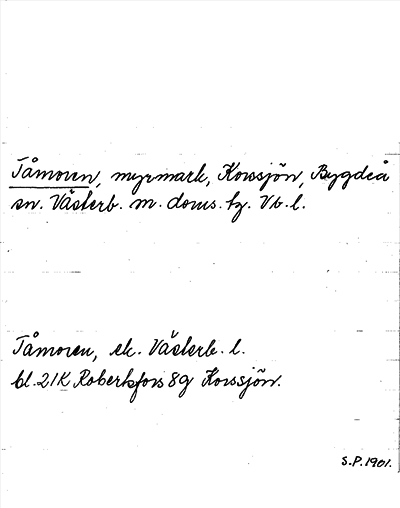 Tåmoren, myrmark, Korssjön, Bygdeå
sn. Västerb. m. doms. tg. Vb. l.
Tåmoren, ek. Västerb. l.
bl. 21K Robertsfors 8g Korssjön.
S.P. 1901.